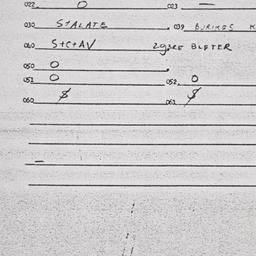 022 0 023 —
030 STALATE 039 BURIKES K
040 S+C+AV 29ske BLETER
050 0
051 0 052 0
060 $ 061 $
—